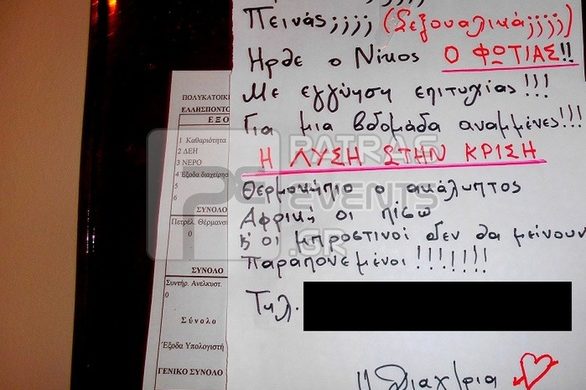 Πεινάς;;;; (Σεξουαλικά;;;;)
Ηρθε ο Νίκος Ο ΦΩΤΙΑΣ!!
Με εγγύηση επιτυχίας!!!
Για μια βδομάδα αναμμένες!!!
Η ΛΥΣΗ ΣΤΗΝ ΚΡΙΣΗ
Θερμοκήπιο ο ακάλυπτος
Αφρική οι πίσω
οι μπροστινοί δεν θα μείνουν
παραπονεμένοι!!!!!!!
Τηλ.
ΠΟΛΥΚΑΤΟΙΚ
ΕΛΛΗΣΠΟΝΤΟ
ΕΞΟ
1 Καθαριότητα
2 ΔΕΗ
3 ΝΕΡΟ
4 Έξοδα διαχείρησ
5
ΣΥΝΟΛΟ
Πετρέλ. Θέρμανσ
0
ΣΥΝΟΛΟ
Συντήρ. Ανελκυστ.
0
Σύνολο
Έξοδα Υπολογιστή
ΓΕΝΙΚΟ ΣΥΝΟΛΟ
PATRAS
EVENTS
.GR